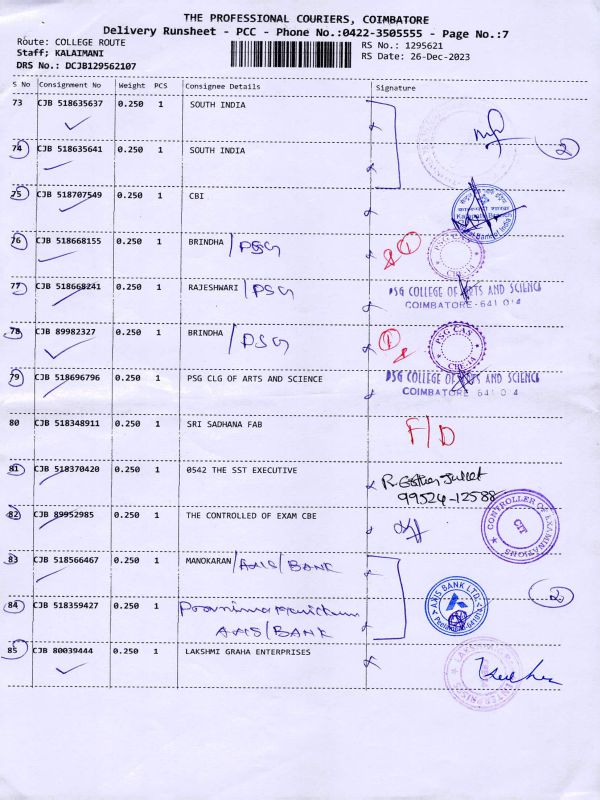 THE PROFESSIONAL COURIERS, COIMBATORE
Delivery Runsheet - PCC - Phone No.:0422-3505555 - Page No.:7
Route: COLLEGE ROUTE
Staff; KALAIMANI
DRS No.: DCJB129562107
RS No.: 1295621
RS Date: 26-Dec-2023
S No Consignment No Weight PCS Consignee Details Signature
73 CJB 518635637 0.250 1 SOUTH INDIA
2
74 CJB 518635641 0.250 1 SOUTH INDIA
75 CJB 518707549 0.250 1 CBI
76 CJB 518668155 0.250 1 BRINDHA /PSG 1
77 CJB 518668241 0.250 1 RAJESHWARI /PSG
PSG COLLEGE OF ARTS AND SCIENCE
COIMBATORE-641 014
78 CJB 89982327 0.250 1 BRINDHA /PSG 1
PSG CAS
CBE-14
79 CJB 518696796 0.250 1 PSG CLG OF ARTS AND SCIENCE
PSG COLLEGE OF ARTS AND SCIENCE
COIMBATORE 641 014
80 CJB 518348911 0.250 1 SRI SADHANA FAB F/D
81 CJB 518370420 0.250 1 0542 THE SST EXECUTIVE
99524-12588
82 CJB 89952985 0.250 1 THE CONTROLLED OF EXAM CBE
CONTROLLER OF EXAMINATIONS
CIT
83 CJB 518566467 0.250 1 MANOKARAN /AXIS/BANK
2
84 CJB 518359427 0.250 1 Poornima
AXIS/BANK
AXIS BANK LTD.
85 CJB 80039444 0.250 1 LAKSHMI GRAHA ENTERPRISES